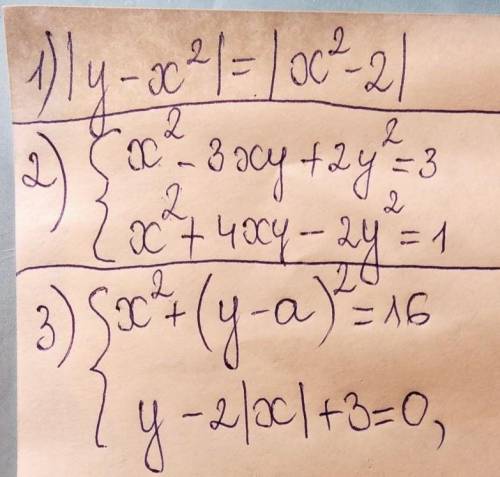 1) |y - x² | = | x² - 2 |
2) { x² - 3xy + 2y² = 3
x² + 4xy - 2y² = 1
3) { x² + (y - a)² = 16
y - 2|x| + 3 = 0,